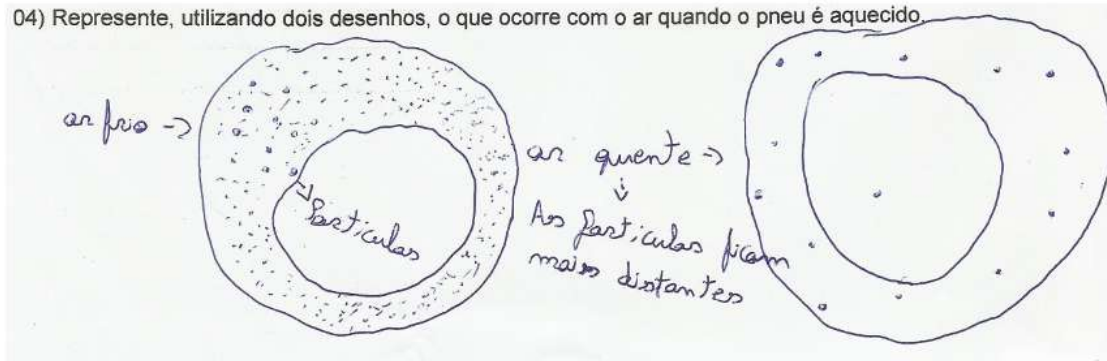 04) Represente, utilizando dois desenhos, o que ocorre com o ar quando o pneu é aquecido.
ar frio ->
Partículas
ar quente ->
As partículas ficam
mais distantes